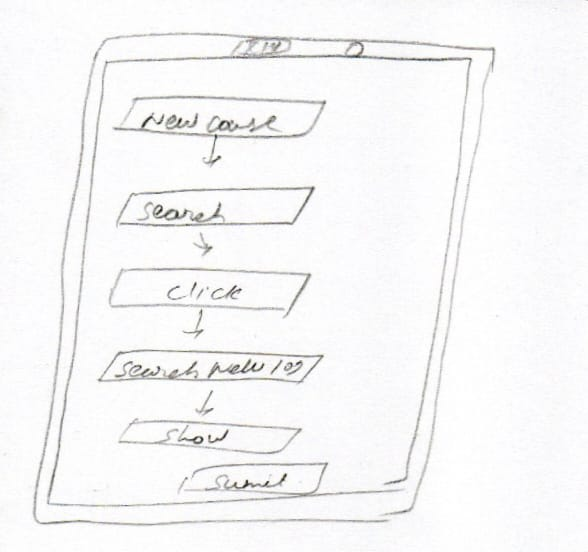 New course
search
click
search New log
show
sumit